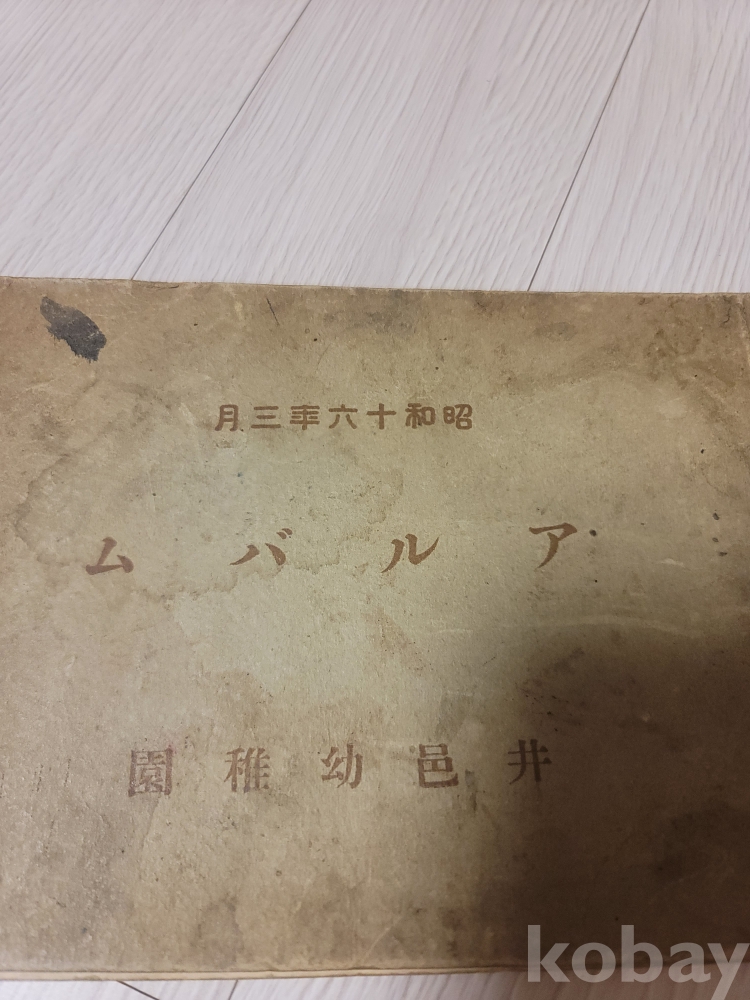 昭和十六年三月
アルバム
井邑幼稚園
kobay